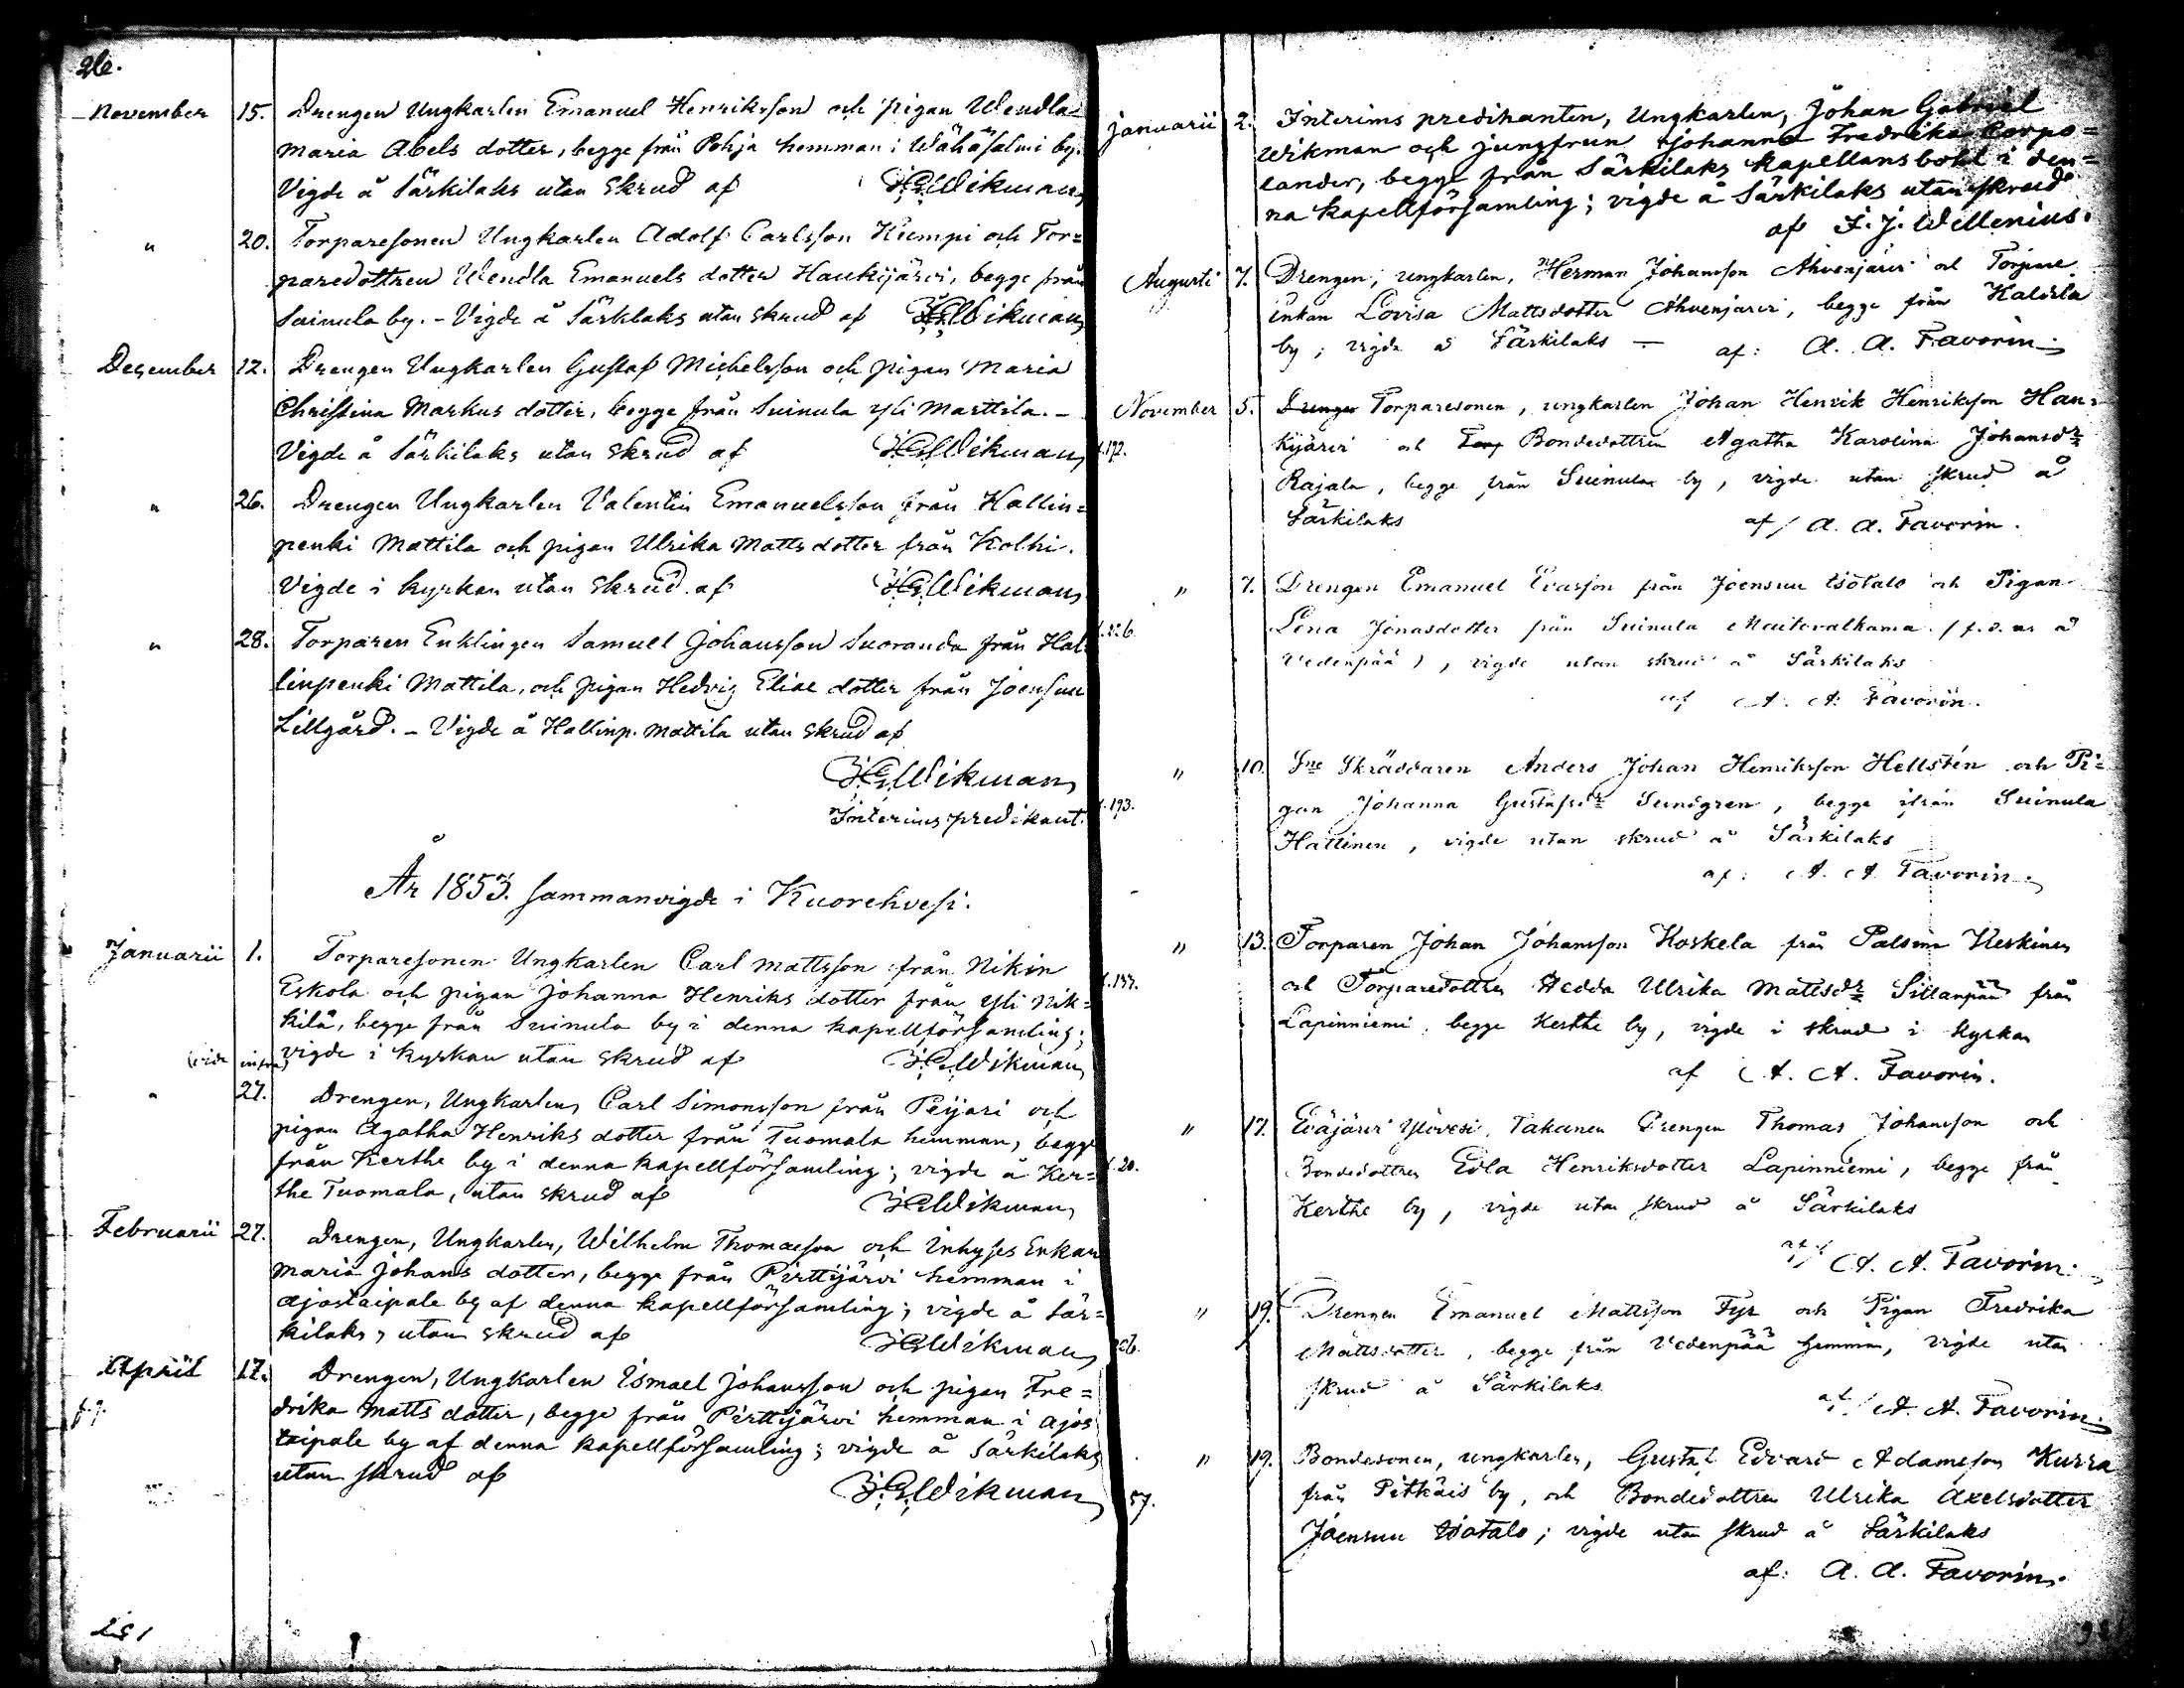 26.
November 15. Drengen Ungkarlen Emanuel Henriksson och pigan Wendla
Maria Abels dotter, begge från Pohja hemman i Wähäsalmi by.
Vigde å Särkilaks utan skrud af J.G. Wikman
" 20. Torparesonen Ungkarlen Adolf Carlsson Kumpi och Tor=
paredottren Wendla Emanuels dotter Haukijärvi, begge från
Suinula by. - Vigde å Särkilaks utan skrud af J.G. Wikman
December 12. Drengen Ungkarlen Gustaf Michelsson och pigan Maria
Christina Markus dotter, begge från Suinula Yli Marttila. -
Vigde å Särkilaks utan skrud af J.G. Wikman
" 26. Drengen Ungkarlen Valentin Emanuelsson från Hallin=
penki Mattila och pigan Ulrika Matts dotter från Kolhi.
Vigde i kyrkan utan skrud af J.G. Wikman
" 28. Torparen Enklingen Samuel Johansson Suoranda från Hal
linpenki Mattila, och pigan Hedvig Eliae dotter från Joensuu
Lillgård. - Vigde å Hallinp. Mattila utan skrud af
J.G. Wikman
Interims predikant.
År 1853. sammanvigde i Kuorehvesi.
Januarii 1. Torparesonen Ungkarlen Carl Mattsson från Nikin
Eskola och pigan Johanna Henriks dotter från Yli Nik=
kilä, begge från Suinula by i denna kapellförsamling;
(vide infra) vigde i kyrkan utan skrud af J.G. Wikman
" 27. Drengen, Ungkarlen, Carl Simonsson från Peijari och
pigan Agatha Henriks dotter från Tuomala hemman, begge
från Kerthe by i denna kapellförsamling; vigde å Ker=
the Tuomala, utan skrud af J.G. Wikman
Februarii 27. Drengen, Ungkarlen, Wilhelm Thomasson och Inhyses Enkan
Maria Johans dotter, begge från Pirttijärvi hemman i
Ajostaipale by af denna kapellförsamling; vigde å Sär=
kilaks, utan skrud af J.G. Wikman
April 17. Drengen, Ungkarlen Ismael Johansson och pigan Fre=
drika Matts dotter, begge från Pirttijärvi hemman i Ajos
taipale by af denna kapellförsamling; vigde å Särkilaks
utan skrud af J.G. Wikman
Januarii 2. Interims predikanten, Ungkarlen, Johan Gabriel
Wikman och jungfrun Johanna Fredrika Corpo=
lander, begge från Särkilaks kapellansbohl i den=
na kapellförsamling; vigde å Särkilaks utan skrud
af F. J. Wellenius.
Augusti 7. Drengen, ungkarlen, Herman Johansson Ahvenjärvi och Torpare
enkan Lovisa Mattsdotter Ahvenjärvi, begge från
by; vigda å Särkilaks - af: A. A. Favorin
November 5. Drengen Torparesonen, ungkarlen Johan Henrik Henriksson Hau=
f.172. kijärvi och Torp Bondedottren Agatha Karolina Johansdr
Rajala, begge från Suinula by, vigde utan skrud å
Särkilaks af/ A. A. Favorin.
" 7. Drengen Emanuel Evasson från Joensuu Isotalo och Pigan
Lena Jonasdotter från Suinula
Vedenpää), vigde utan skrud å Särkilaks
af A. A. Favorin.
" 10. Sne Skräddaren Anders Johan Henriksson Hellstén och Pi=
f.193. gan Johanna Gustafsdr Sundgren, begge ifrån Suinula
Hattinen, vigde utan skrud å Särkilaks
af: A. A. Favorin.
" 13. Torparen Johan Johansson Koskela från Palsina Keskinen
och Torparedottren Hedda Ulrika Mattsdr Sillanpää från
Lapinniemi, begge Kerthe by, vigde i skrud i kyrkan
af A. A. Favorin.
" 17. Eväjärvi Ylivesi, Takanen Drengen Thomas Johansson och
f.20. Bondedottren Edla Henriksdotter Lapinniemi, begge från
Kerthe by, vigde utan skrud å Särkilaks
af/ A. A. Favorin.
" 19. Drengen Emanuel Mattsson Fyr och Pigan Fredrika
Mattsdotter, begge från Vedenpää hemman, vigde utan
skrud å Särkilaks af/ A. A. Favorin.
" 19. Bondesonen, ungkarlen, Gustaf Edvard Adamsson Kurra
57. från Pitkäis by, och Bondedottren Ulrika Axelsdotter
Joensuu Isotalo; vigde utan skrud å Särkilaks
af: A. A. Favorin.